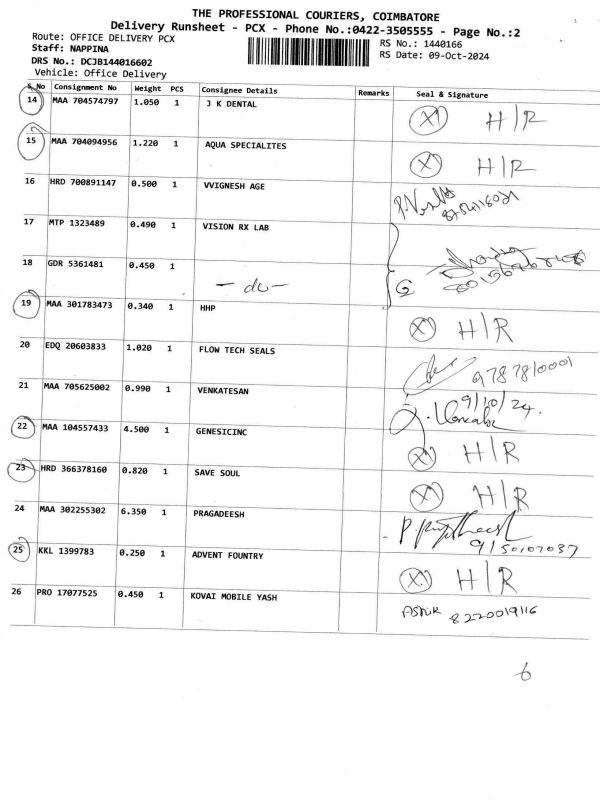 THE PROFESSIONAL COURIERS, COIMBATORE
Delivery Runsheet - PCX - Phone No.:0422-3505555 - Page No.:2
Route: OFFICE DELIVERY PCX
RS No.: 1440166
Staff: NAPPINA
RS Date: 09-Oct-2024
DRS No.: DCJB144016602
Vehicle: Office Delivery
S.No Consignment No Weight PCS Consignee Details Remarks Seal & Signature
14 MAA 704574797 1.050 1 J K DENTAL X H/R
15 MAA 704094956 1.220 1 AQUA SPECIALITES X H/R
16 HRD 700891147 0.500 1 VVIGNESH AGE
17 MTP 1323489 0.490 1 VISION RX LAB
18 GDR 5361481 0.450 1 - do -
19 MAA 301783473 0.340 1 HHP X H/R
20 EDQ 20603833 1.020 1 FLOW TECH SEALS 9787810001
21 MAA 705625002 0.990 1 VENKATESAN 9/10/24.
22 MAA 104557433 4.500 1 GENESICINC X H/R
23 HRD 366378160 0.820 1 SAVE SOUL X H/R
24 MAA 302255302 6.350 1 PRAGADEESH 9150107037
25 KKL 1399783 0.250 1 ADVENT FOUNTRY X H/R
26 PRO 17077525 0.450 1 KOVAI MOBILE YASH 8220019116
6